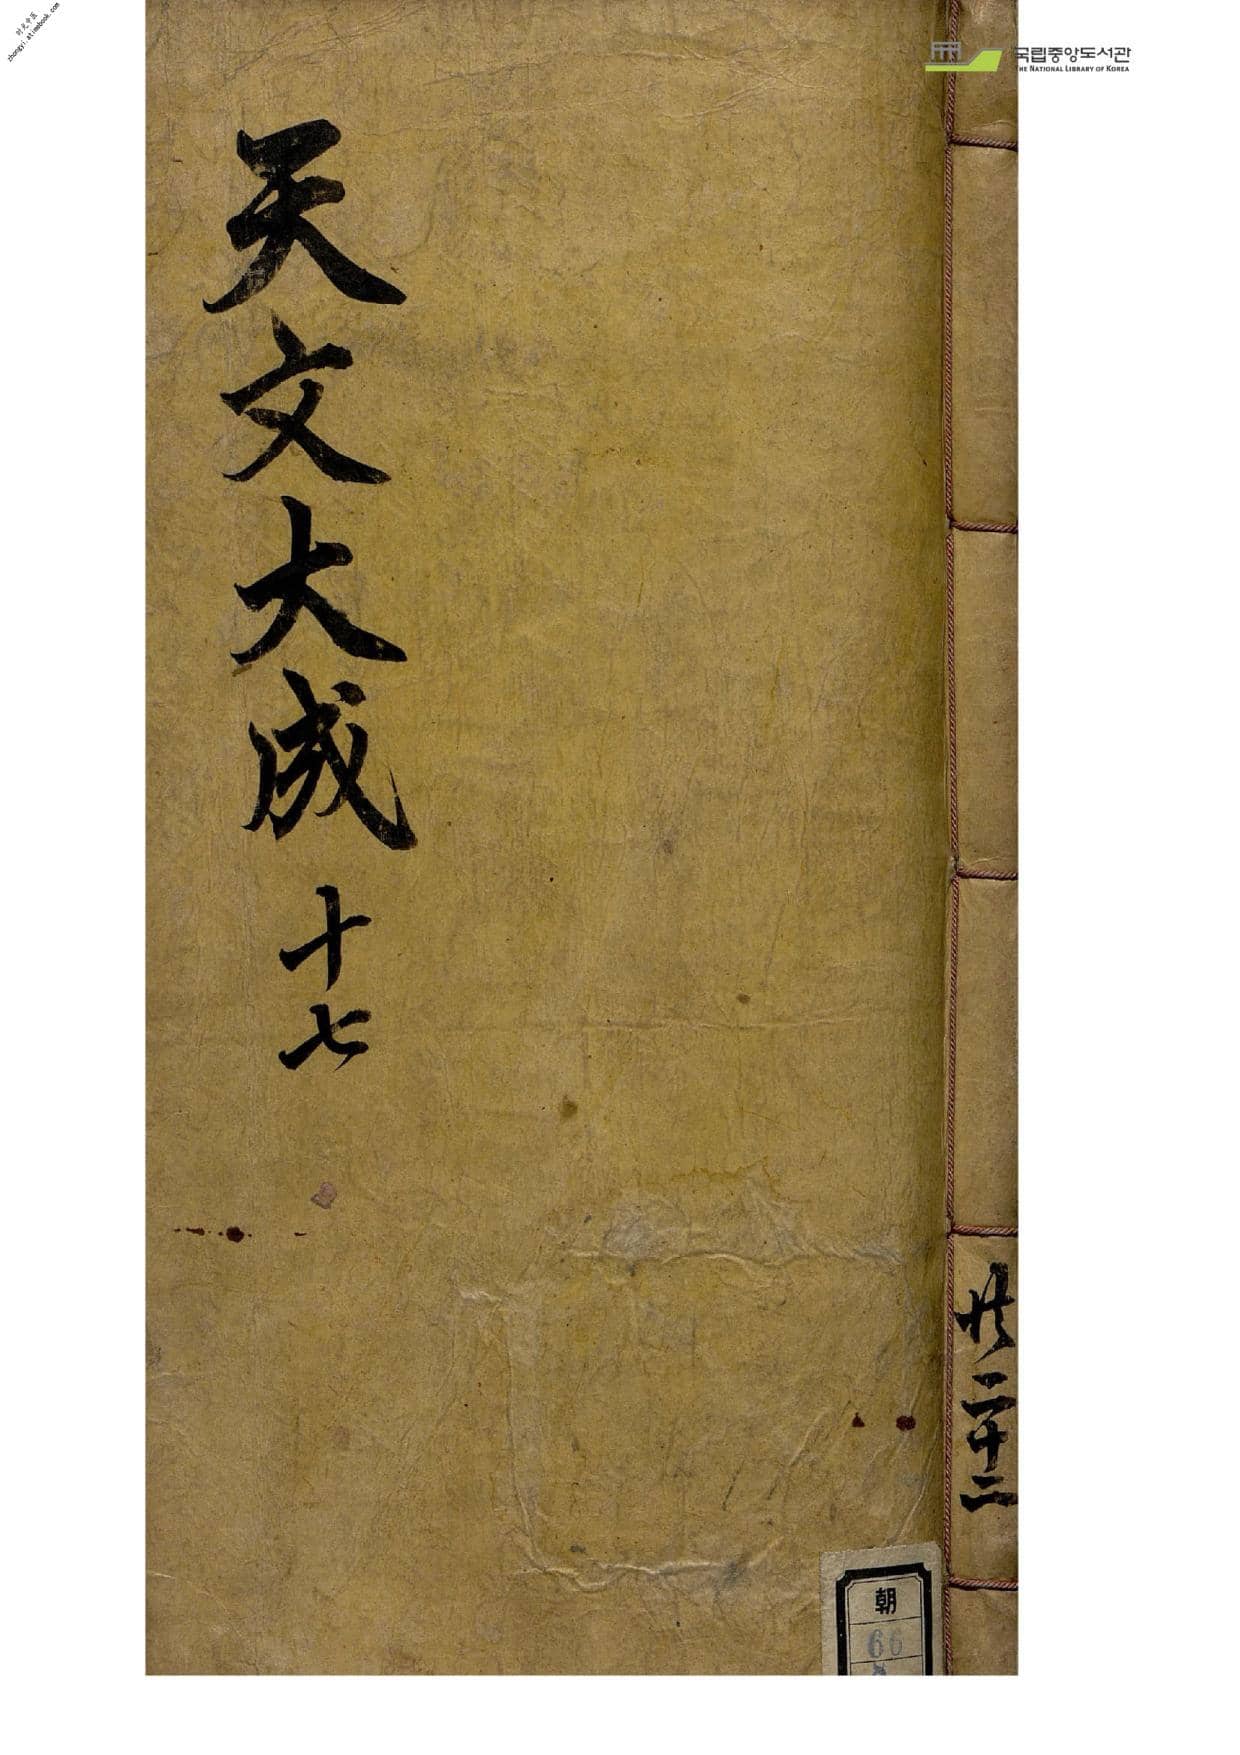 时光中医
zhongyi.atimebook.com
국립중앙도서관
THE NATIONAL LIBRARY OF KOREA
天文大成 十七
共二十二
朝
66